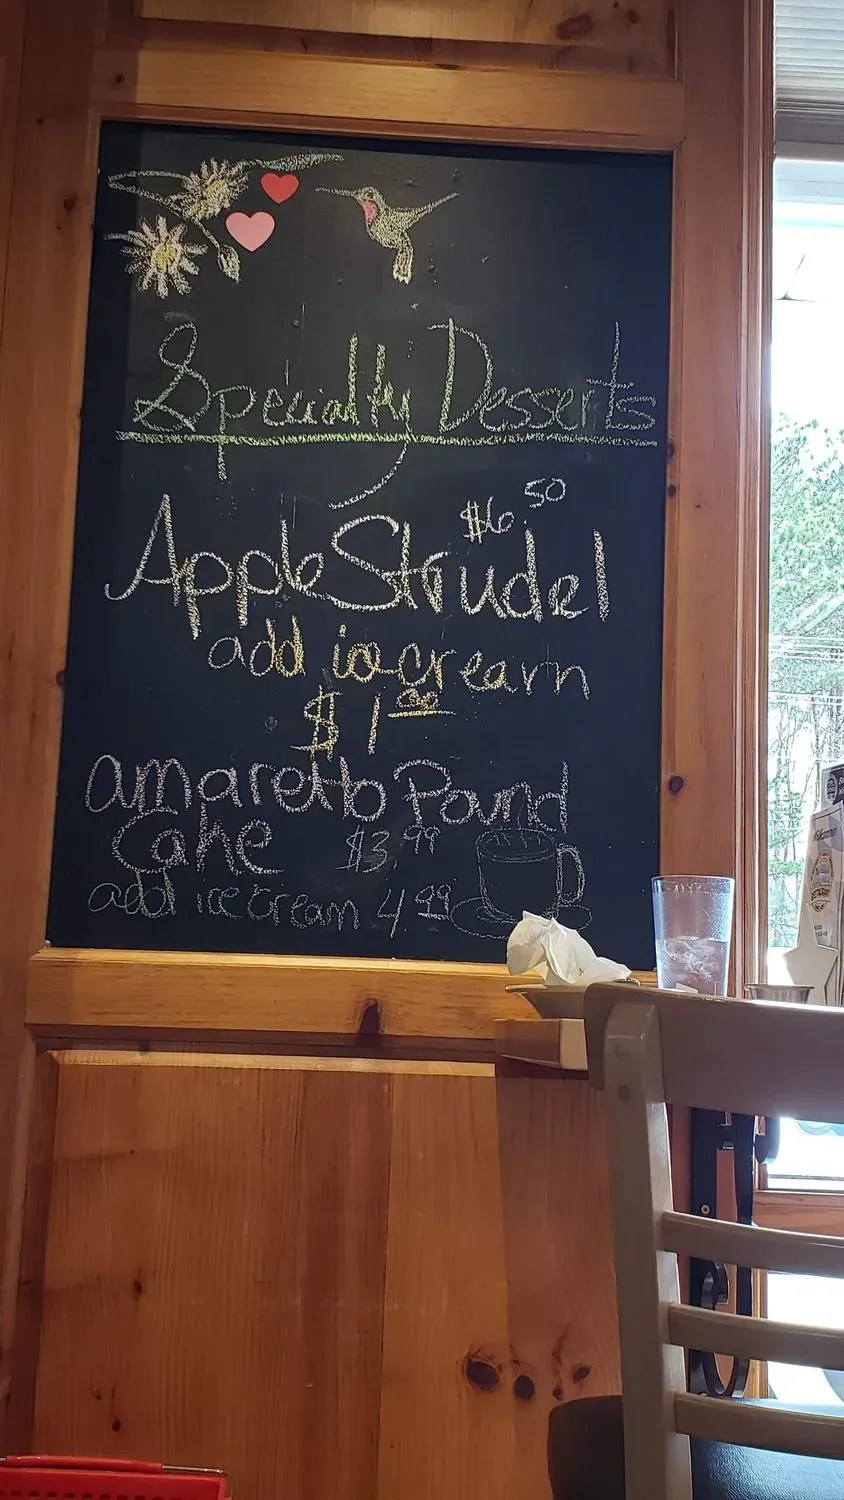 Specialty Desserts
$6.50
Apple Strudel
add ice cream
$1.00
amaretto Pound
Cake $3.99
add ice cream 4.99